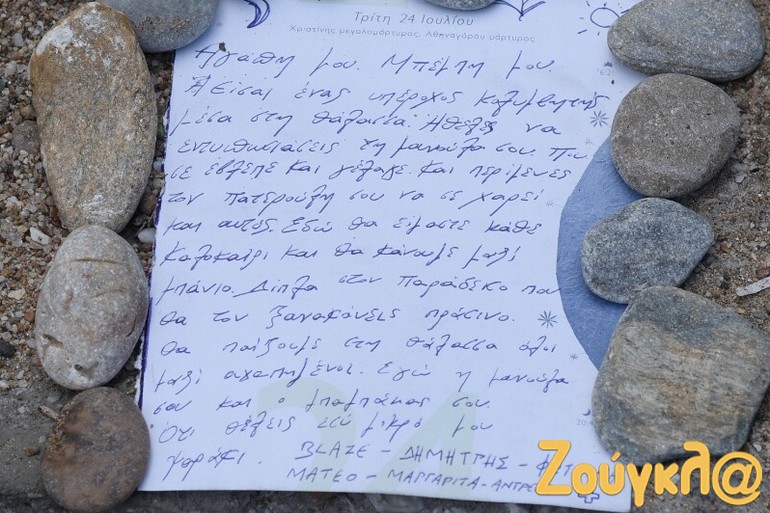 Τρίτη 24 Ιουλίου
Χριστίνης μεγαλομάρτυρος, Αθηναγόρου μάρτυρος
Αγάπη μου. Μπέμπη μου.
Είσαι ένας υπέροχος κολυμβητής
μέσα στη θάλασσα. Ήθελες να
εντυπωσιάσεις τη μανούλα σου. Που
σε έβλεπε και γέλαγε. Και περίμενες
τον πατερούλη σου να σε χαρεί
και αυτός. Εδώ θα είμαστε κάθε
καλοκαίρι και θα κάνουμε μαζί
μπάνιο. Δίπλα στον Παράδεισο που
θα τον ξανακάνεις πράσινο.
Θα παίζουμε στη θάλασσα όλοι
μαζί αγαπημένοι. Εγώ η μανούλα
σου και ο μπαμπάκας σου.
Ότι θέλεις εσύ μικρό μου
ψαράκι. BLAZE - ΔΗΜΗΤΡΗΣ -
ΜΑΤΕΟ - ΜΑΡΓΑΡΙΤΑ -
Ζούγκλ@